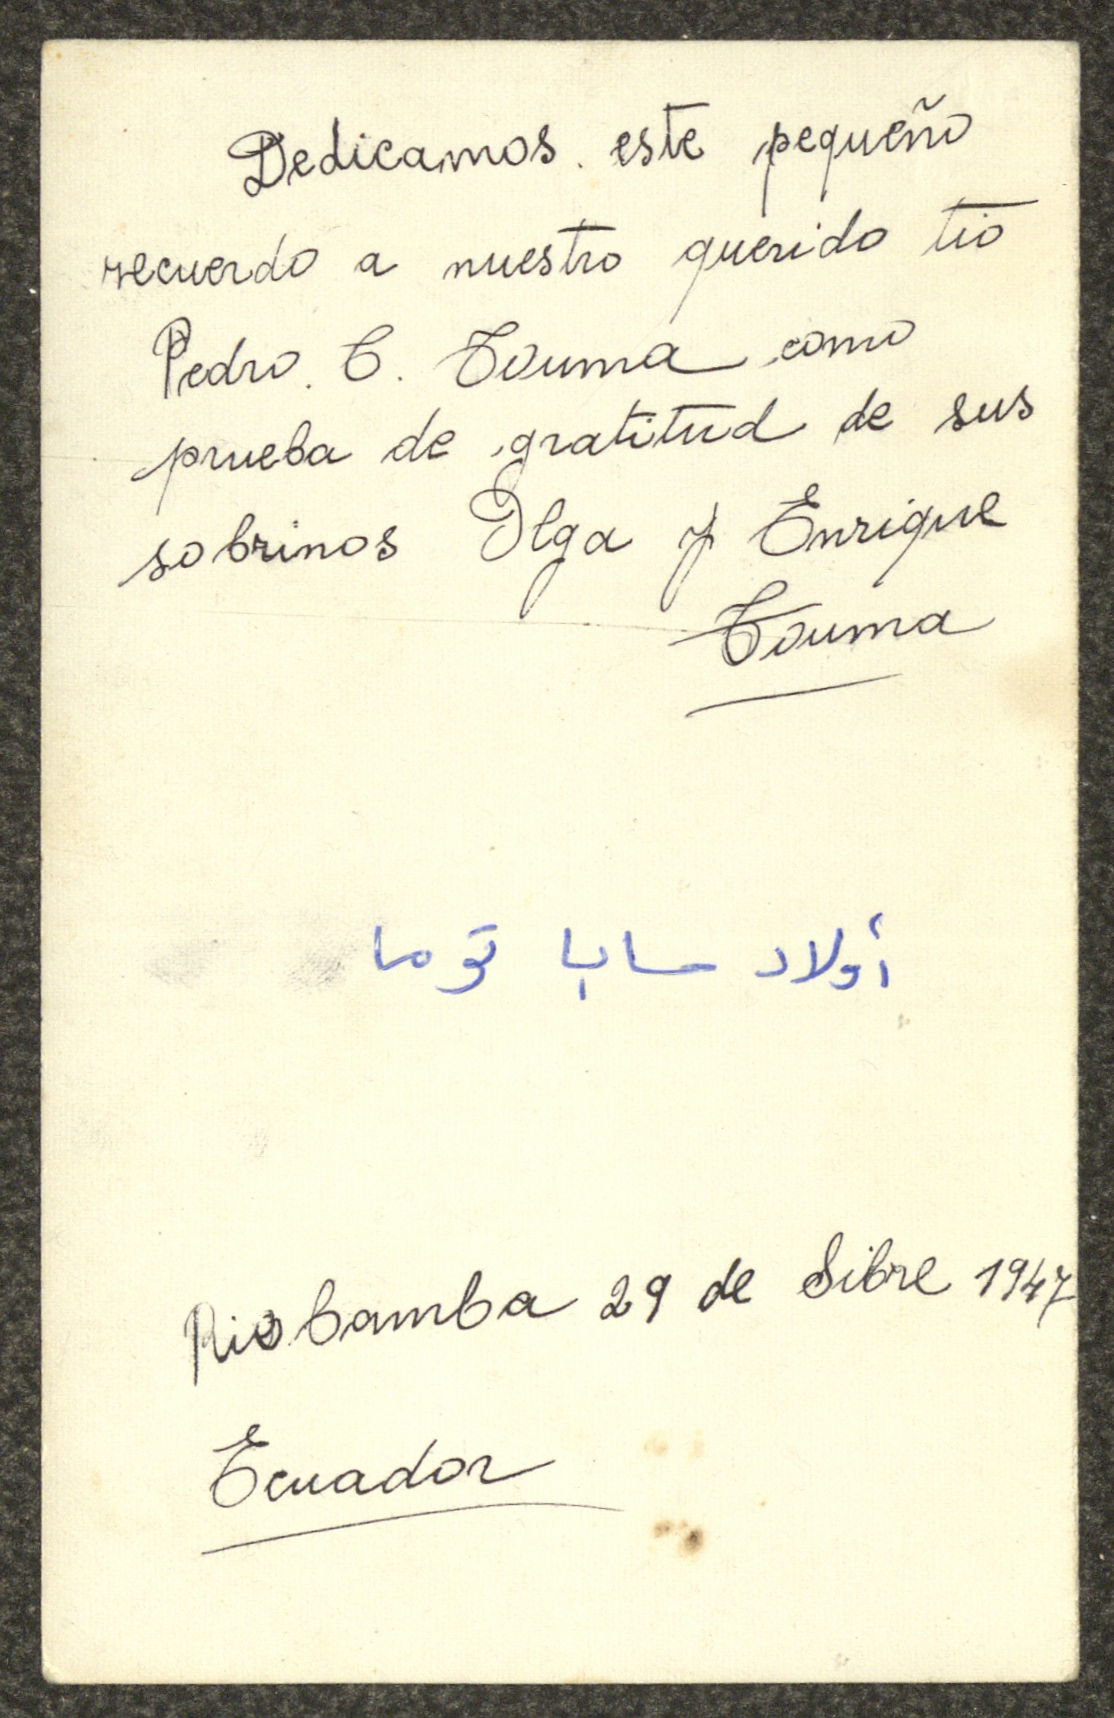 Dedicamos este pequeño
recuerdo a nuestro querido tio
Pedro. C. Touma como
prueba de gratitud de sus
sobrinos Olga y Enrique
Touma
أولاد سابا توما
Riobamba 29 de Sibre 1947
Ecuador